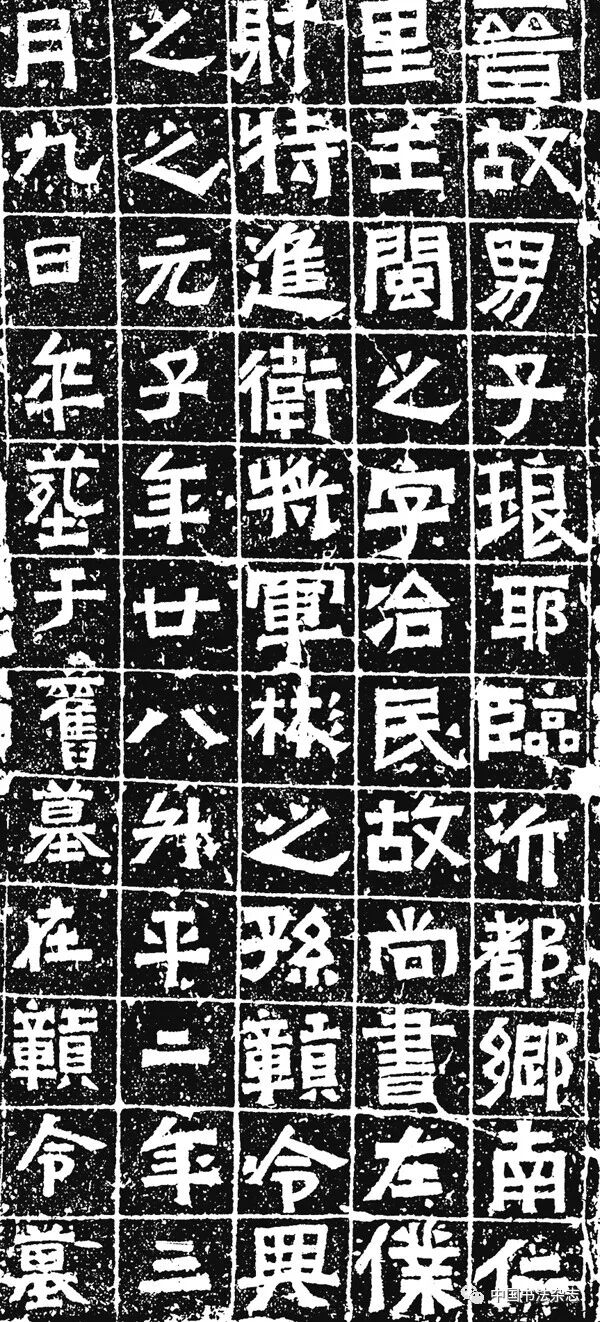 晉故男子琅耶臨沂都鄉南仁
里王閩之字治民故尚書左僕
射特進衛將軍彬之孫贛令興
之之元子年廿八升平二年三
月九日卒葬于舊墓在贛令墓
中国书法杂志